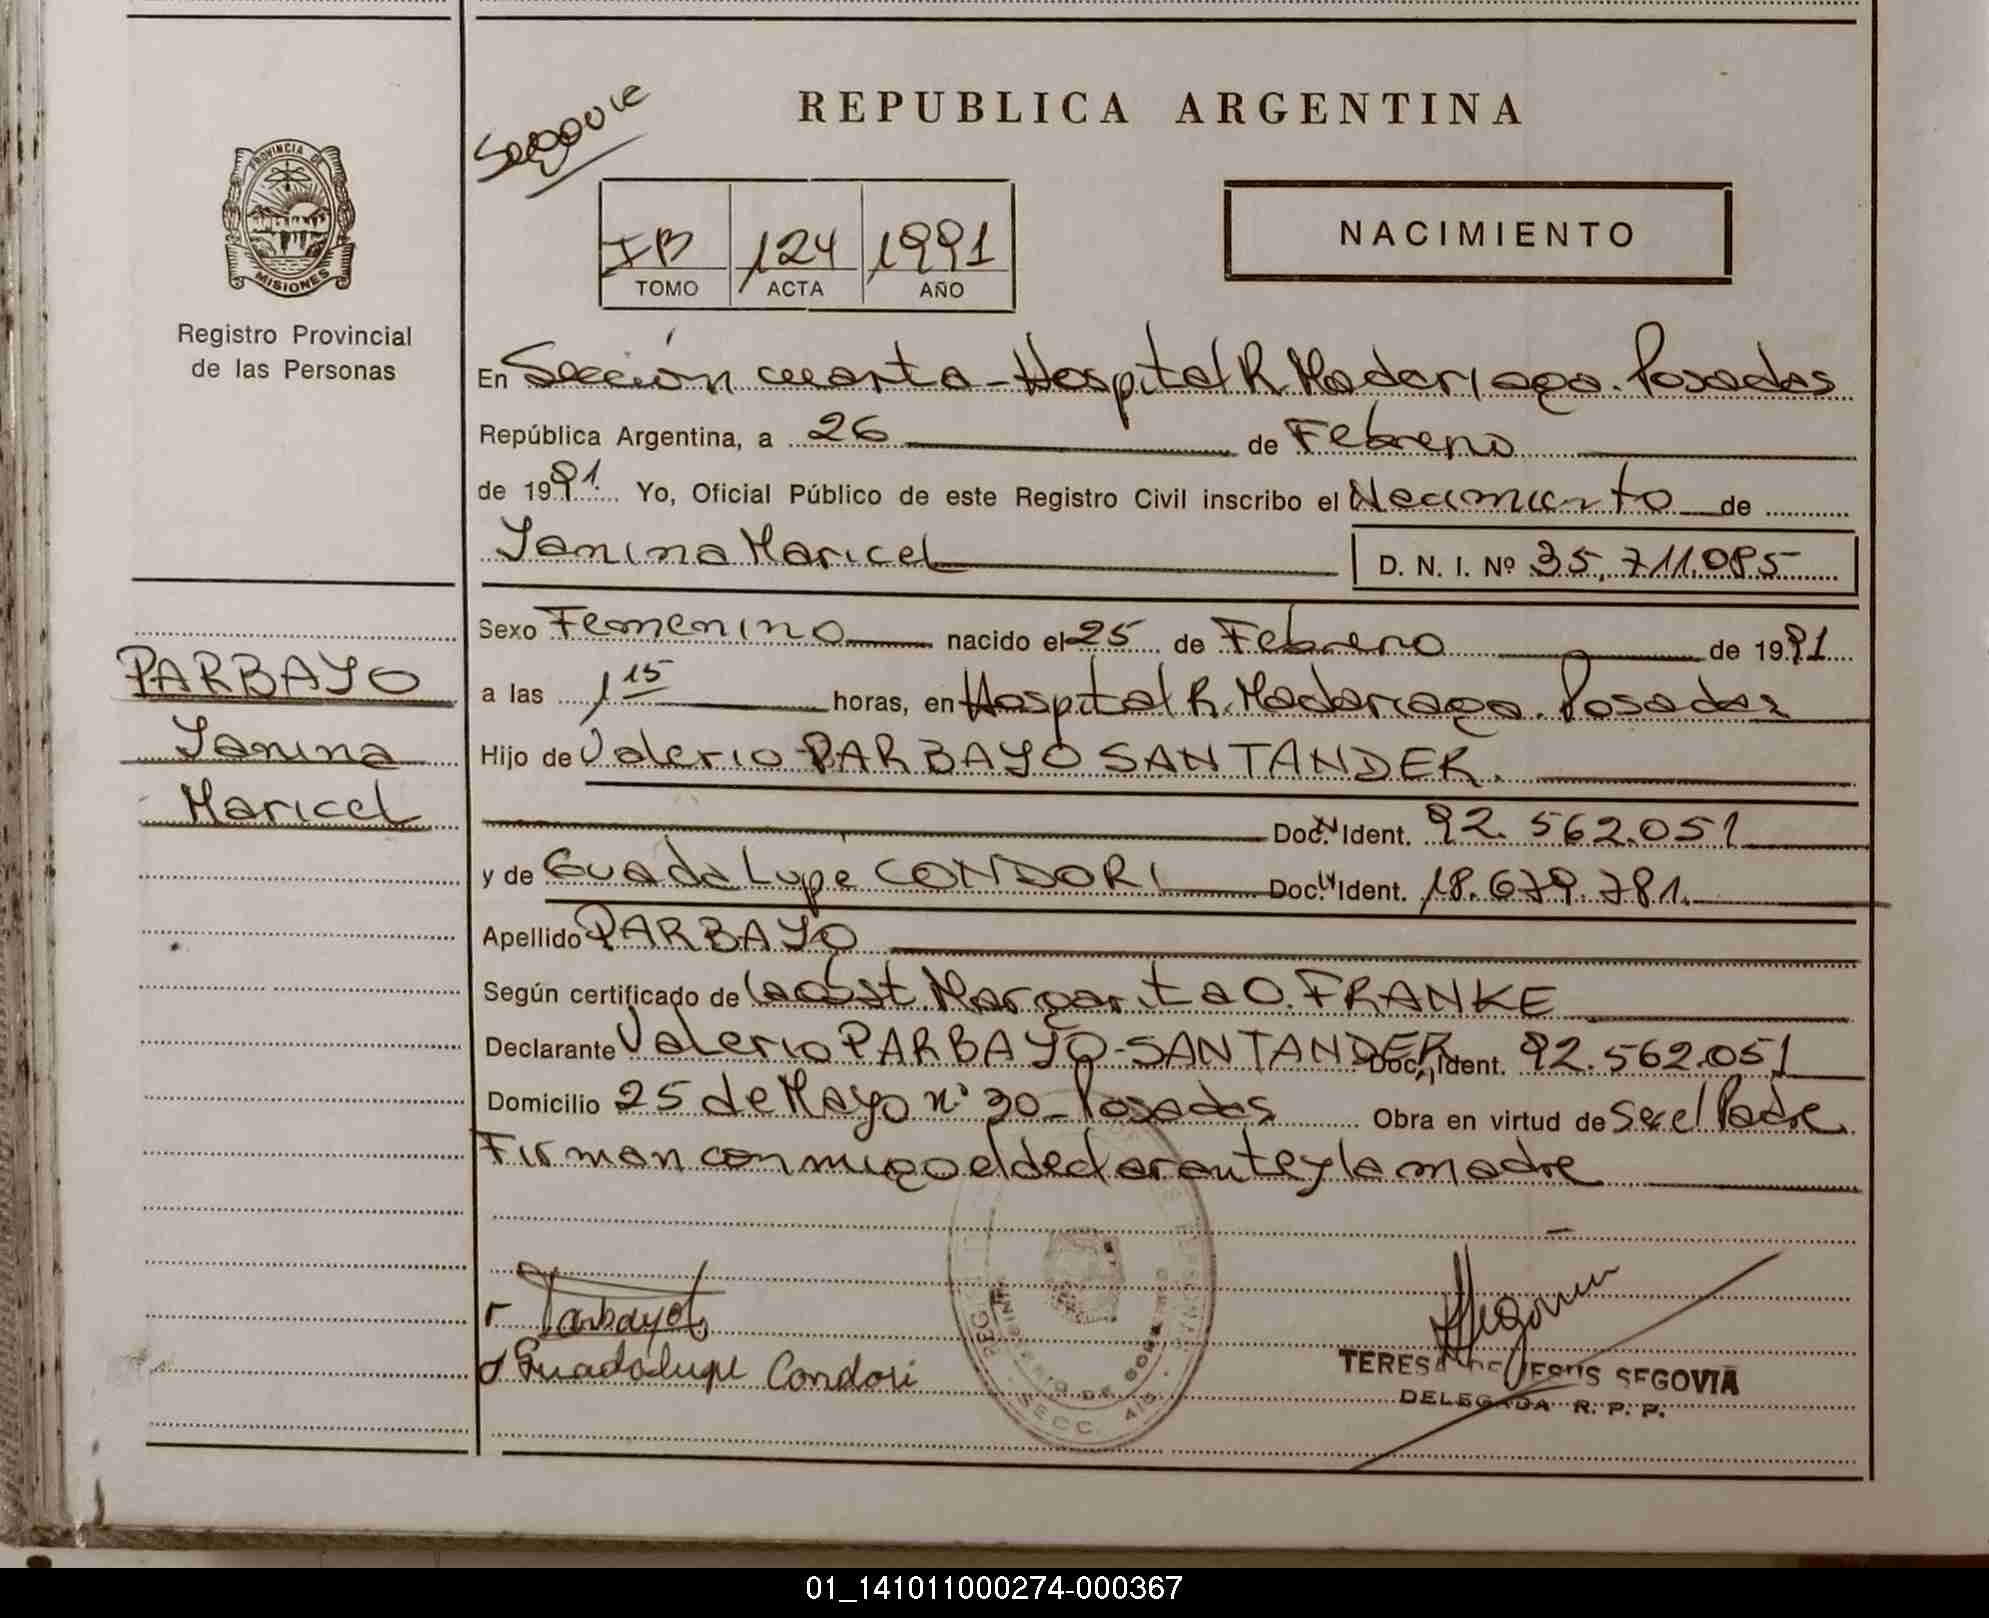 Segovia
REPUBLICA ARGENTINA
PROVINCIA DE
MISIONES
Registro Provincial
de las Personas
IB 124 1991
TOMO ACTA AÑO
NACIMIENTO
En Sección cuarta - Hospital R. Madariaga. Posadas
República Argentina, a 26 de Febrero
de 1991. Yo, Oficial Público de este Registro Civil inscribo el Nacimiento de
Yanina Maricel D. N. I. Nº 35.711.085
PARBAYO
Yanina
Maricel
Sexo Femenino nacido el 25 de Febrero de 1991
a las 1 15 horas, en Hospital R. Madariaga. Posadas
Hijo de Valerio PARBAYO SANTANDER.
Doc. N Ident. 92.562.051
y de Guadalupe CONDORI Doc. N Ident. 18.679.781.
Apellido PARBAYO
Según certificado de la obst. Margarita O. FRANKE
Declarante Valerio PARBAYO-SANTANDER Doc. N Ident. 92.562.051
Domicilio 25 de Mayo nº 90 - Posadas Obra en virtud de ser el Padre
Firman conmigo el declarante y la madre
Guadalupe Condori
Segovia
TERESA DE JESUS SEGOVIA
DELEGADA R. P. P.
SECC. 4ta
01_141011000274-000367